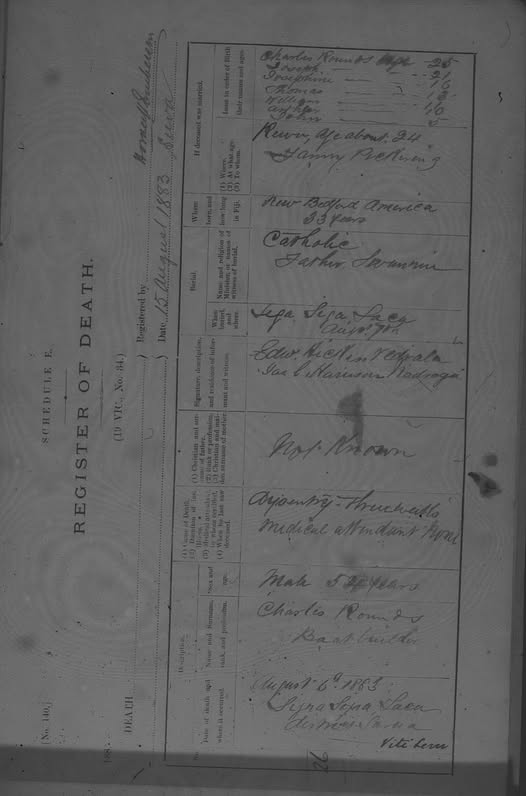 [No. 140.]
SCHEDULE E.
REGISTER OF DEATH.
(19 VIC., No. 34.)
188
DEATH
Registered by
Date 15 August 1883 Suva
No.
Description.
Date of death and where it occurred.
Name and Surname, rank, and profession.
Sex and age.
(1) Cause of Death.
(2) Duration of last illness.
(3) Medical attendant, by whom certified.
(4) When he last saw deceased.
(1) Christian and surname of father.
(2) Rank or profession.
(3) Christian and maiden surname of mother.
Signature, description, and residence of informant and witness.
When buried, and where.
Burial.
Name and religion of Minister, or names of witness of burial.
Where born, and how long in Fiji.
If deceased was married.
(1) Where.
(2) At what age.
(3) To whom.
Issue in order of Birth their names and ages.
26
August 6th 1883
Siga Siga Laca
Viti Levu
Charles Rounds
Boat builder
Male 52 years
Dysentry Three weeks
Medical attendant None
Not Known
Siga Siga Laca
Augst 7th
Catholic
Father
New Bedford America
33 years
Rewa, age about 24
Fanny Pickering
Charles Rounds age 25
Joseph 21
Josephine 16
Thomas
William
Arthur 10
John 5